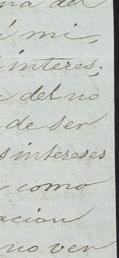 na del
á mi,
interes;
a del no
de ser
s intereses
como
acion
no ver